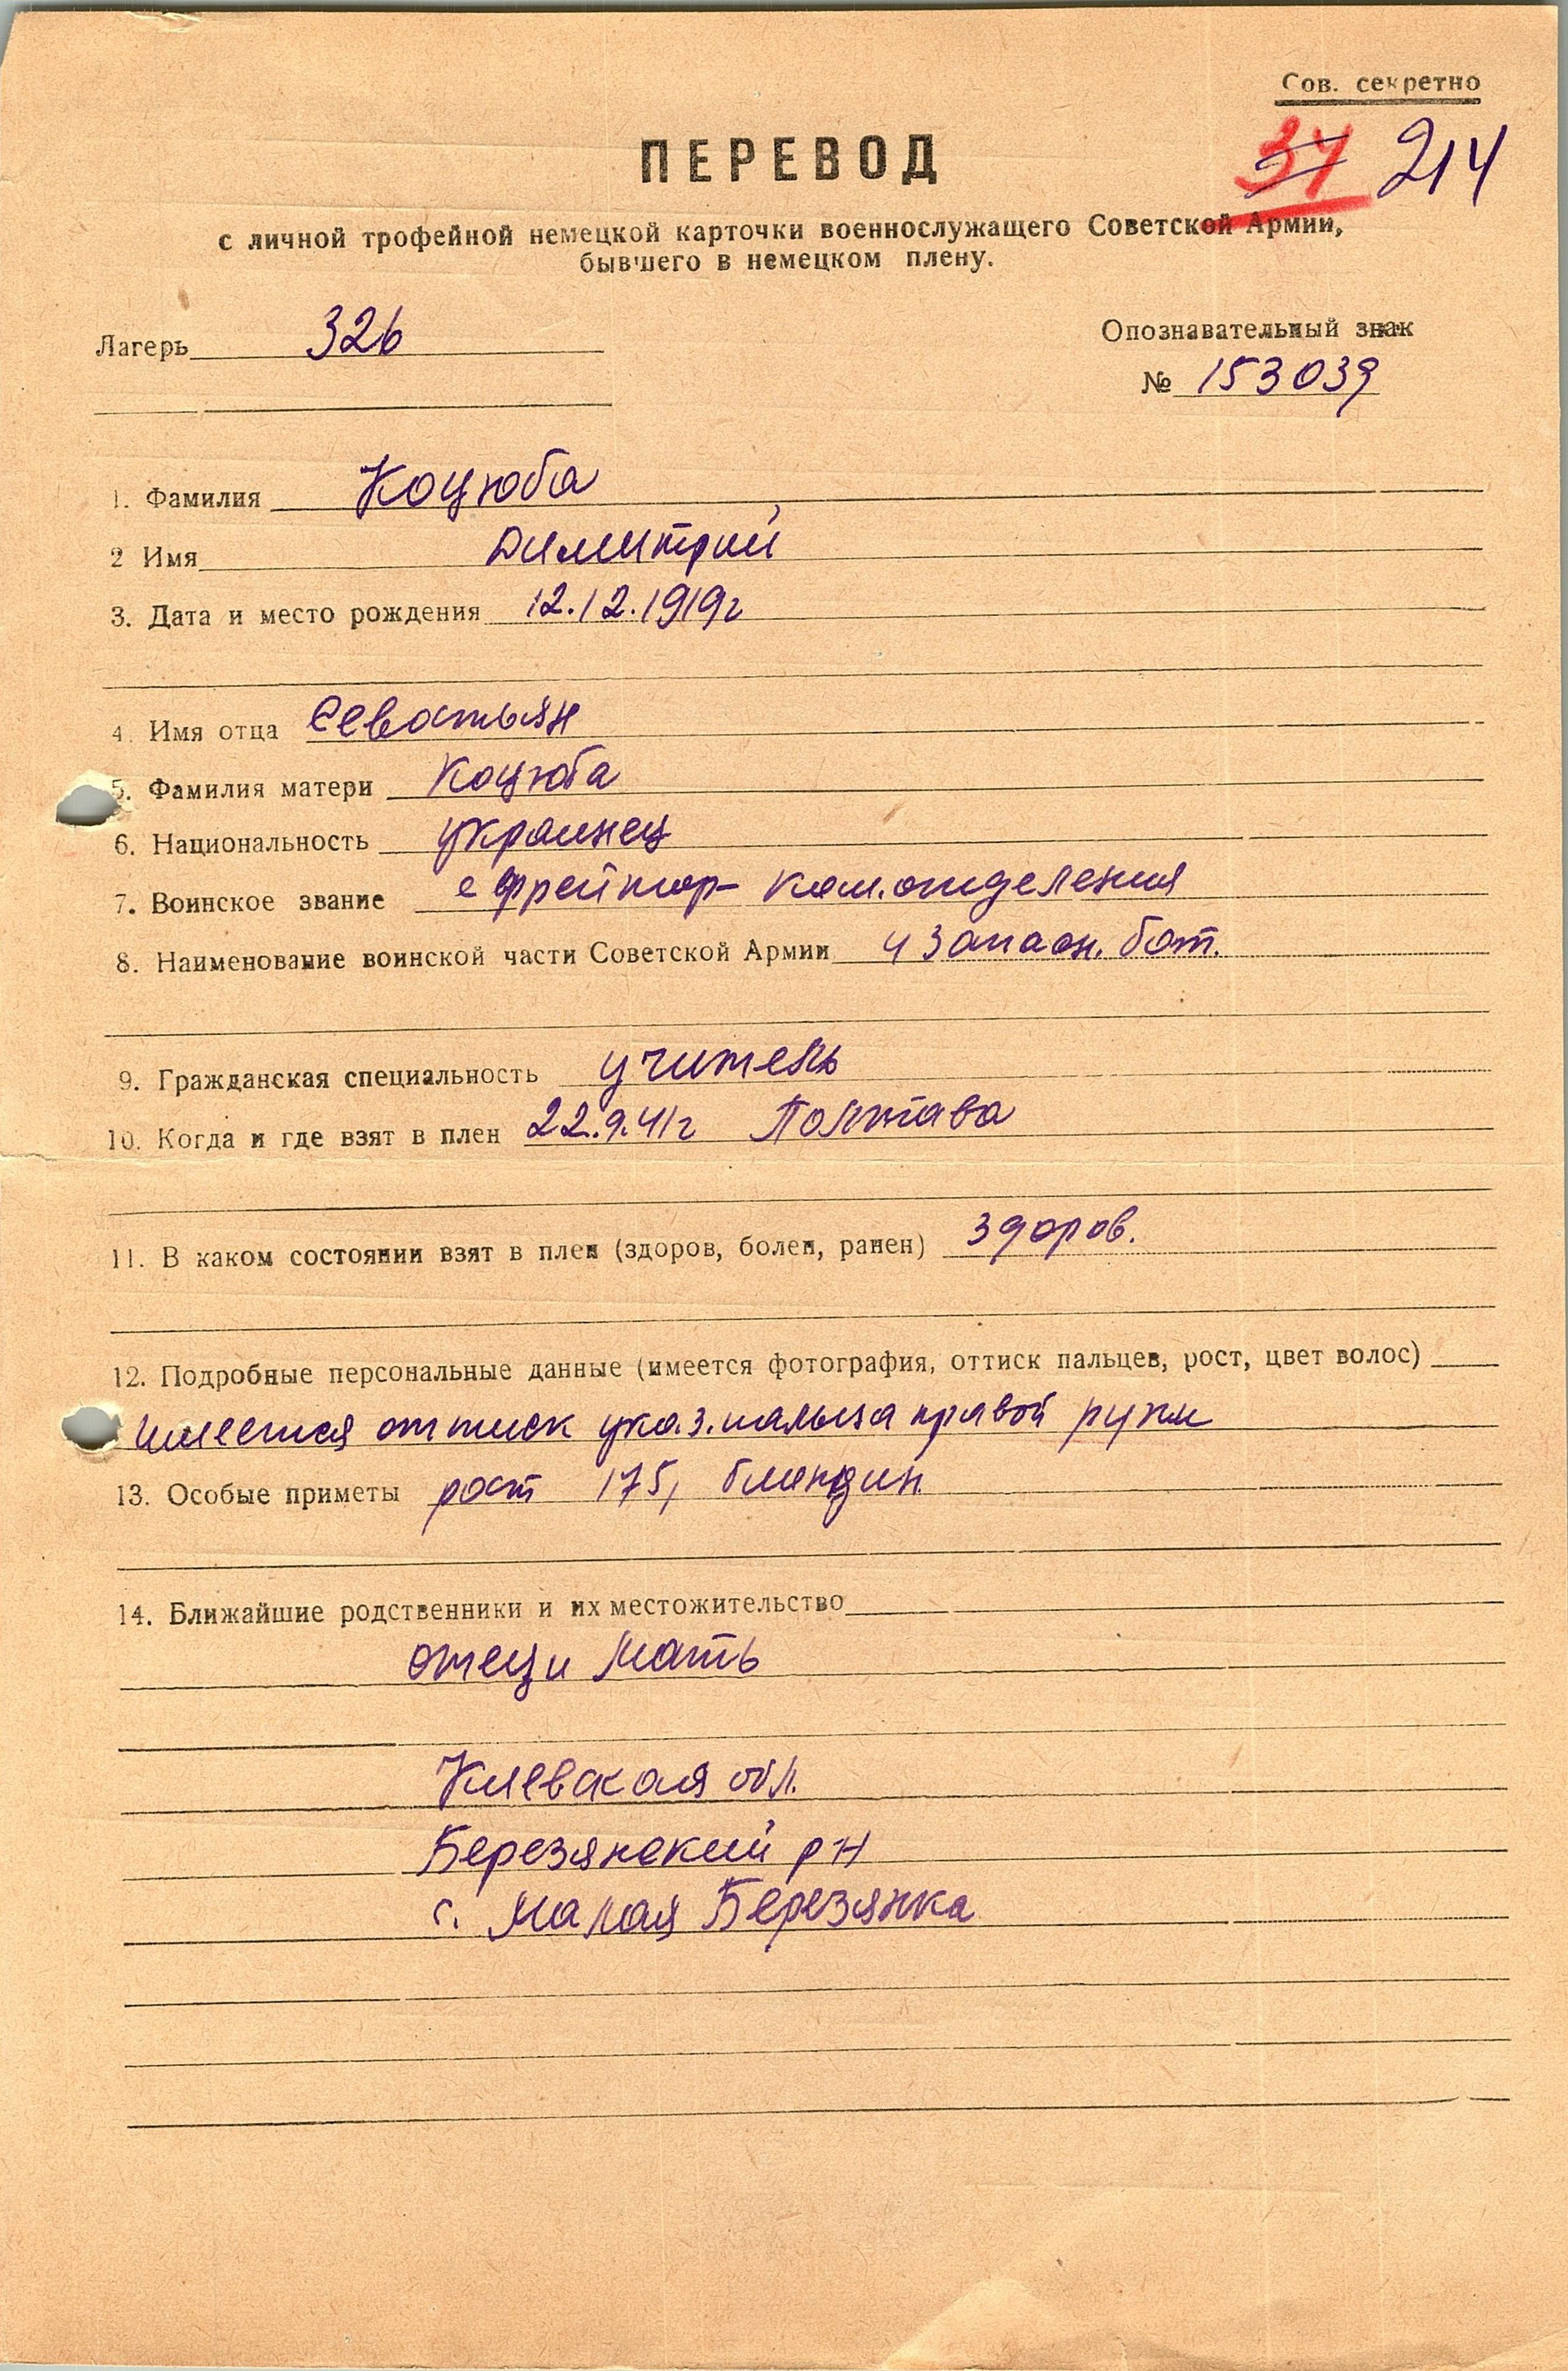 Сов. секретно
37 214
ПЕРЕВОД
с личной трофейной немецкой карточки военнослужащего Советской Армии,
бывшего в немецком плену.
Лагерь 326
Опознавательный знак
№ 153039
1. Фамилия Коцюба
2 Имя Димитрий
3. Дата и место рождения 12.12.1919г
4. Имя отца Севастьян
5. Фамилия матери Коцюба
6. Национальность украинец
7. Воинское звание ефрейтор- ком.отделения
8. Наименование воинской части Советской Армии 4 запасн. бат.
9. Гражданская специальность учитель
10. Когда и где взят в плен 22.9.41г Полтава
11. В каком состоянии взят в плен (здоров, болен, ранен) здоров.
12. Подробные персональные данные (имеется фотография, оттиск пальцев, рост, цвет волос)
имеется оттиск указ. пальца правой руки
13. Особые приметы рост 175, блондин.
14. Ближайшие родственники и их местожительство
отец и мать
Киевская обл.
Березянский рн
с. Малая Березянка